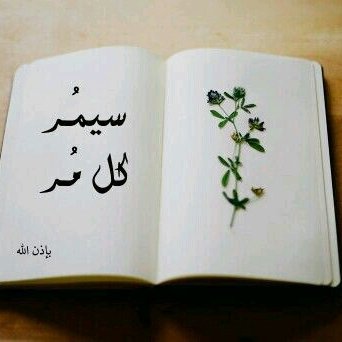 سيمُر
كل مُر
بإذن الله